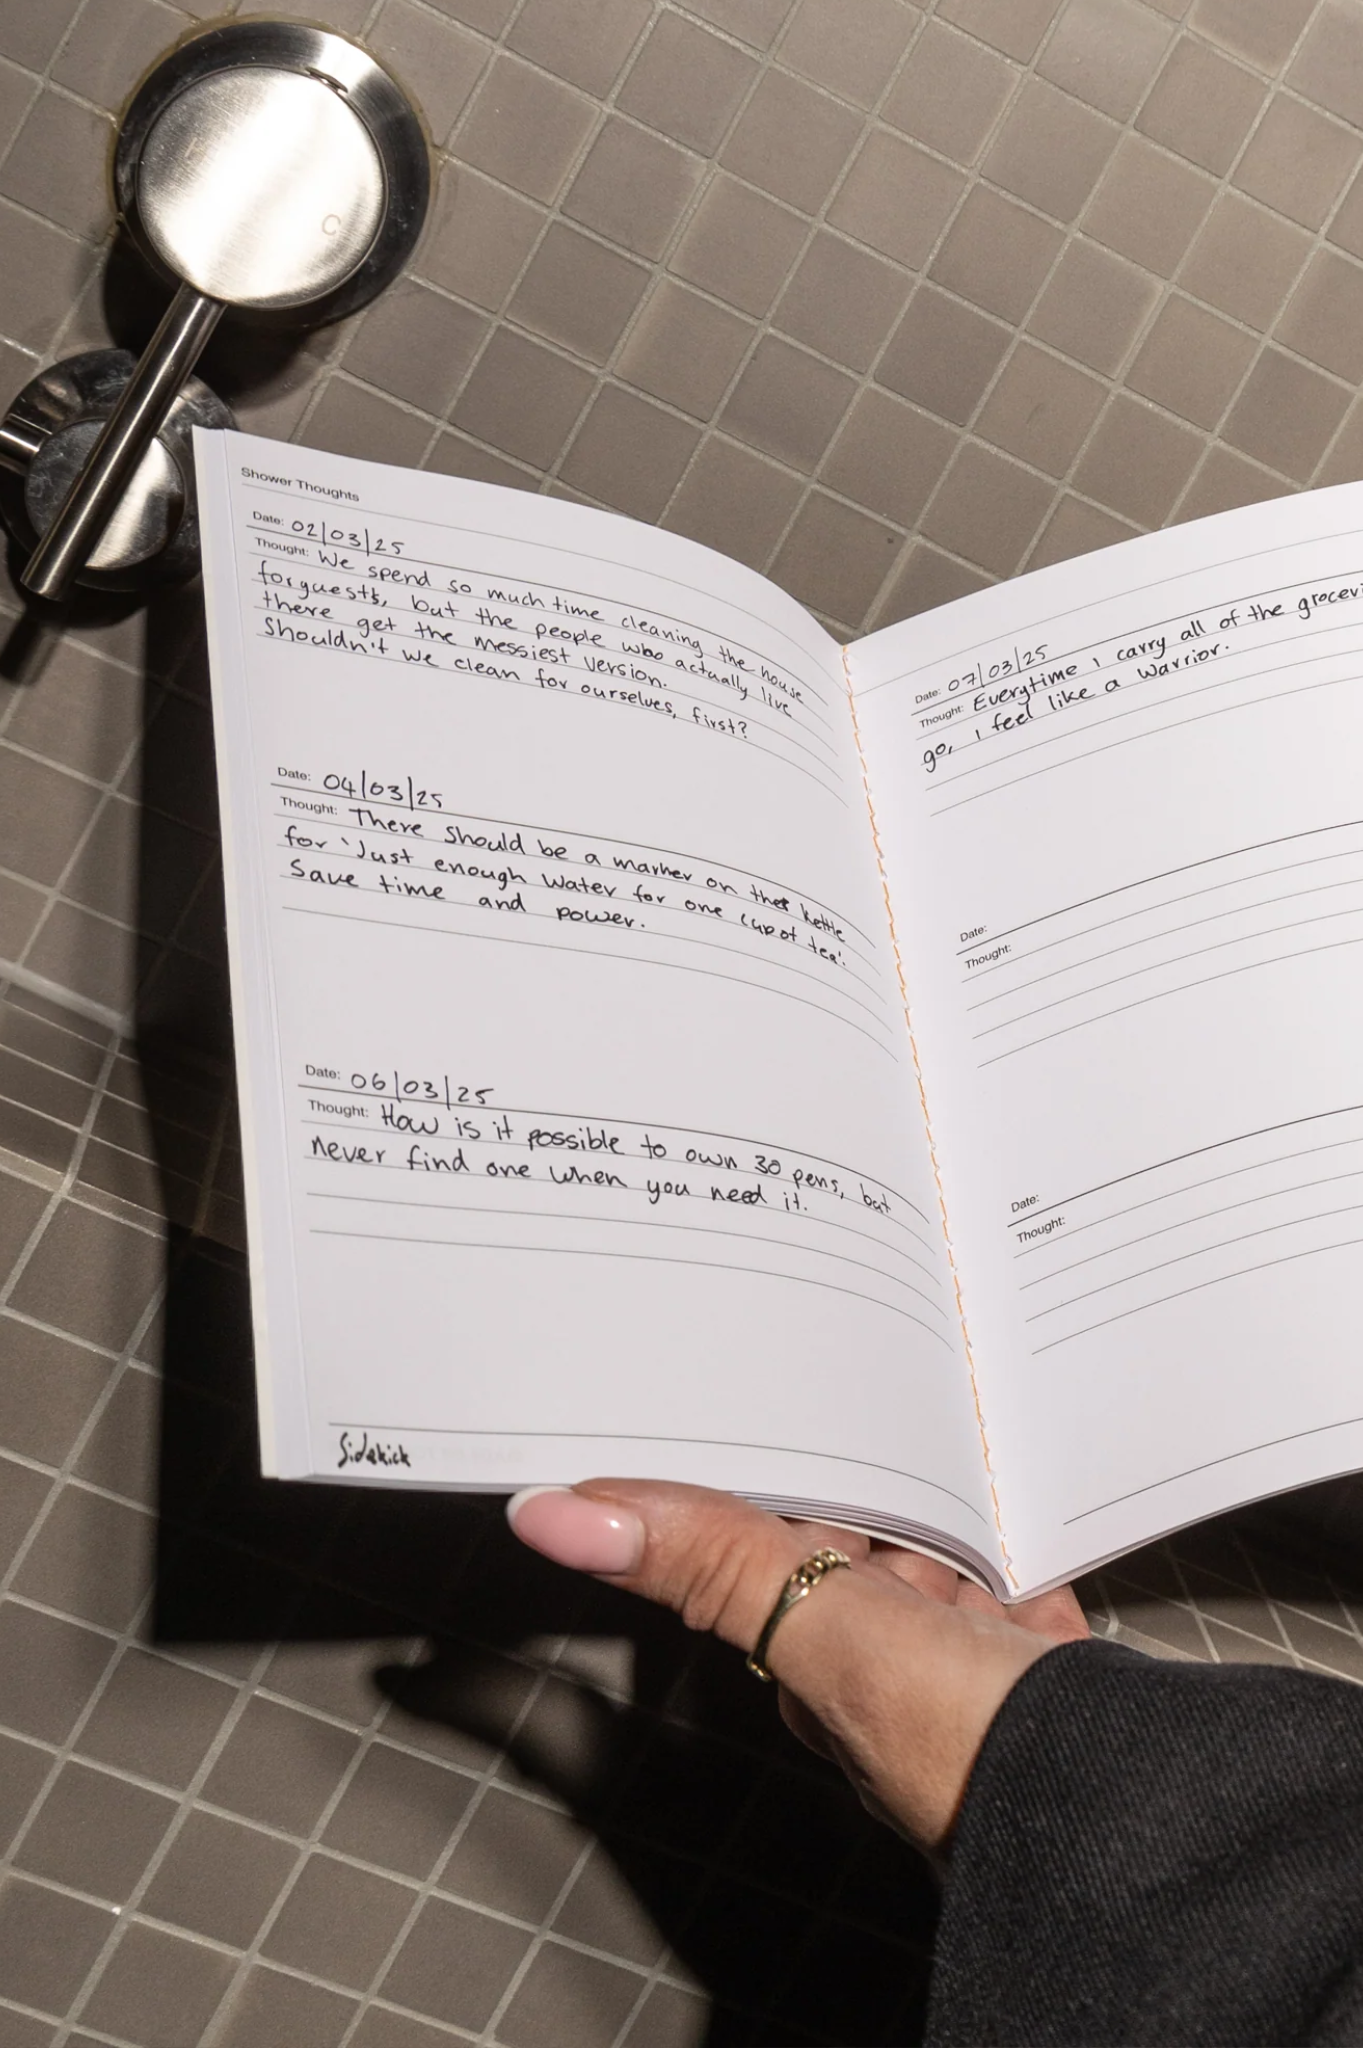 Shower Thoughts
Date: 02/03/25
Thought: We spend so much time cleaning the house
for guests, but the people who actually live
there get the messiest version.
Shouldn't we clean for ourselves, first?
Date: 04/03/25
Thought: There should be a marker on the kettle
for 'Just enough water for one cup of tea'.
Save time and power.
Date: 06/03/25
Thought: How is it possible to own 30 pens, but
never find one when you need it.
Sidekick
Date: 07/03/25
Thought: Everytime i carry all of the
go, i feel like a warrior.
Date:
Thought:
Date:
Thought:
C